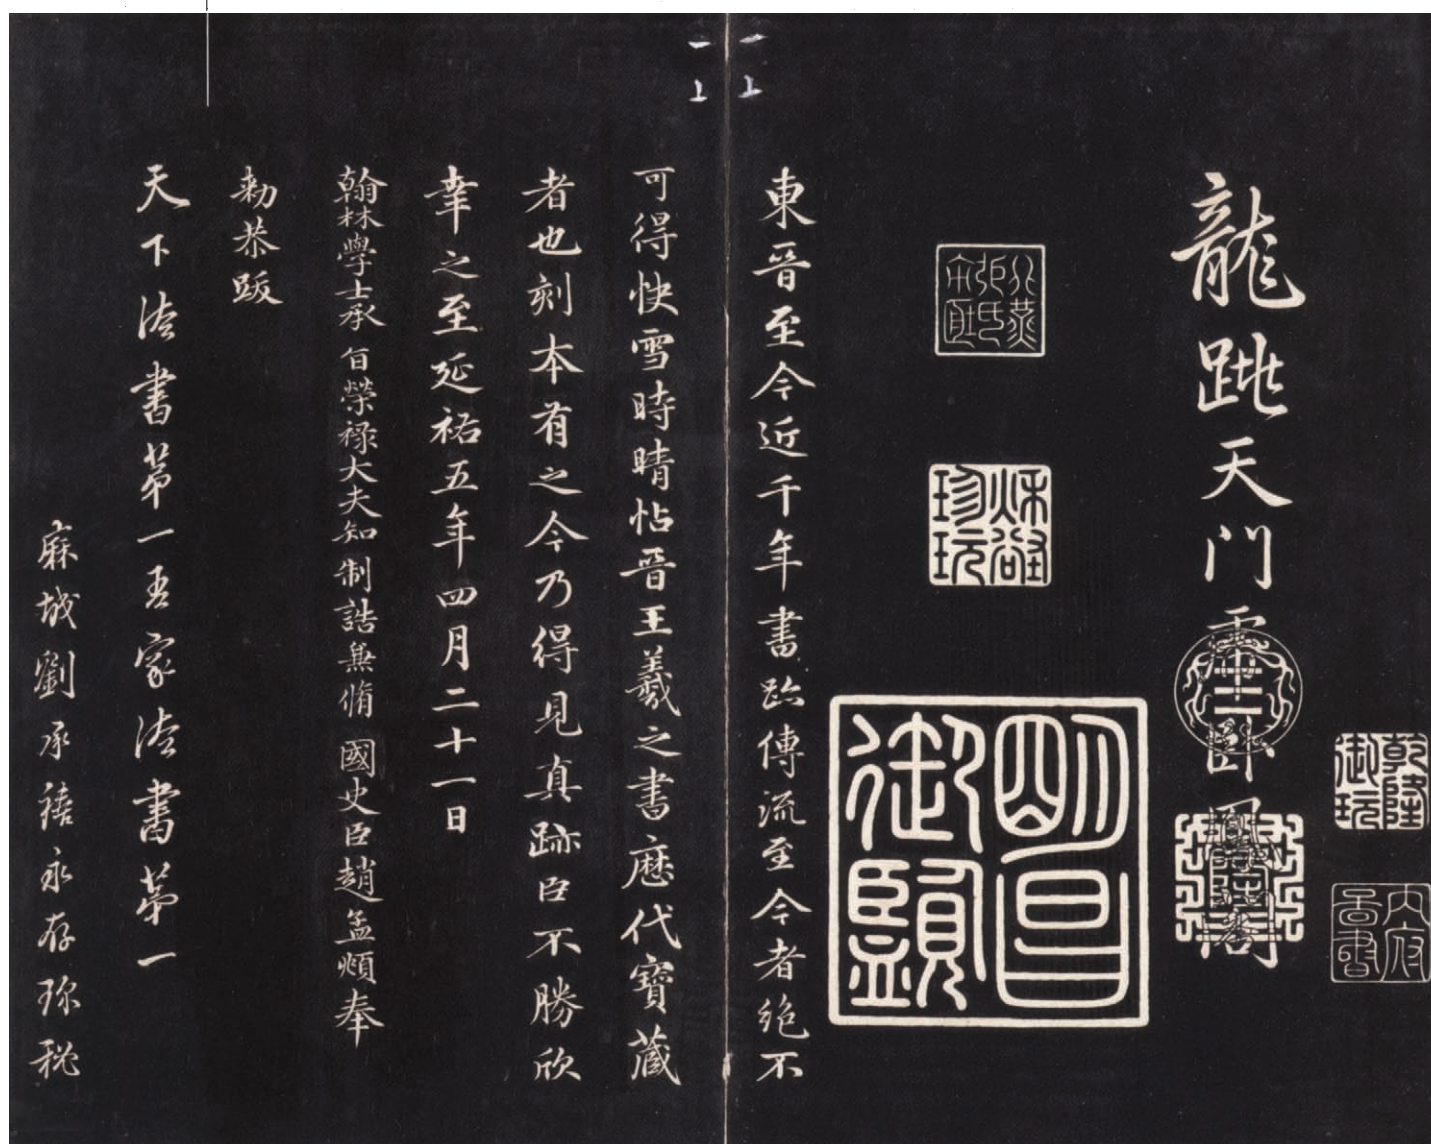 龍跳天門虎臥鳳閣
乾隆御玩
明昌御覽
一上
一上
東晉至今近千年書跡傳流至今者絶不
可得快雪時晴帖晉王羲之書歷代寶藏
者也刻本有之今乃得見真跡臣不勝欣
幸之至延祐五年四月二十一日
翰林學士承旨榮祿大夫知制誥兼脩國史臣趙孟頫奉
勅恭跋
天下法書第一吾家法書第一
麻城劉承禧永存珎秘